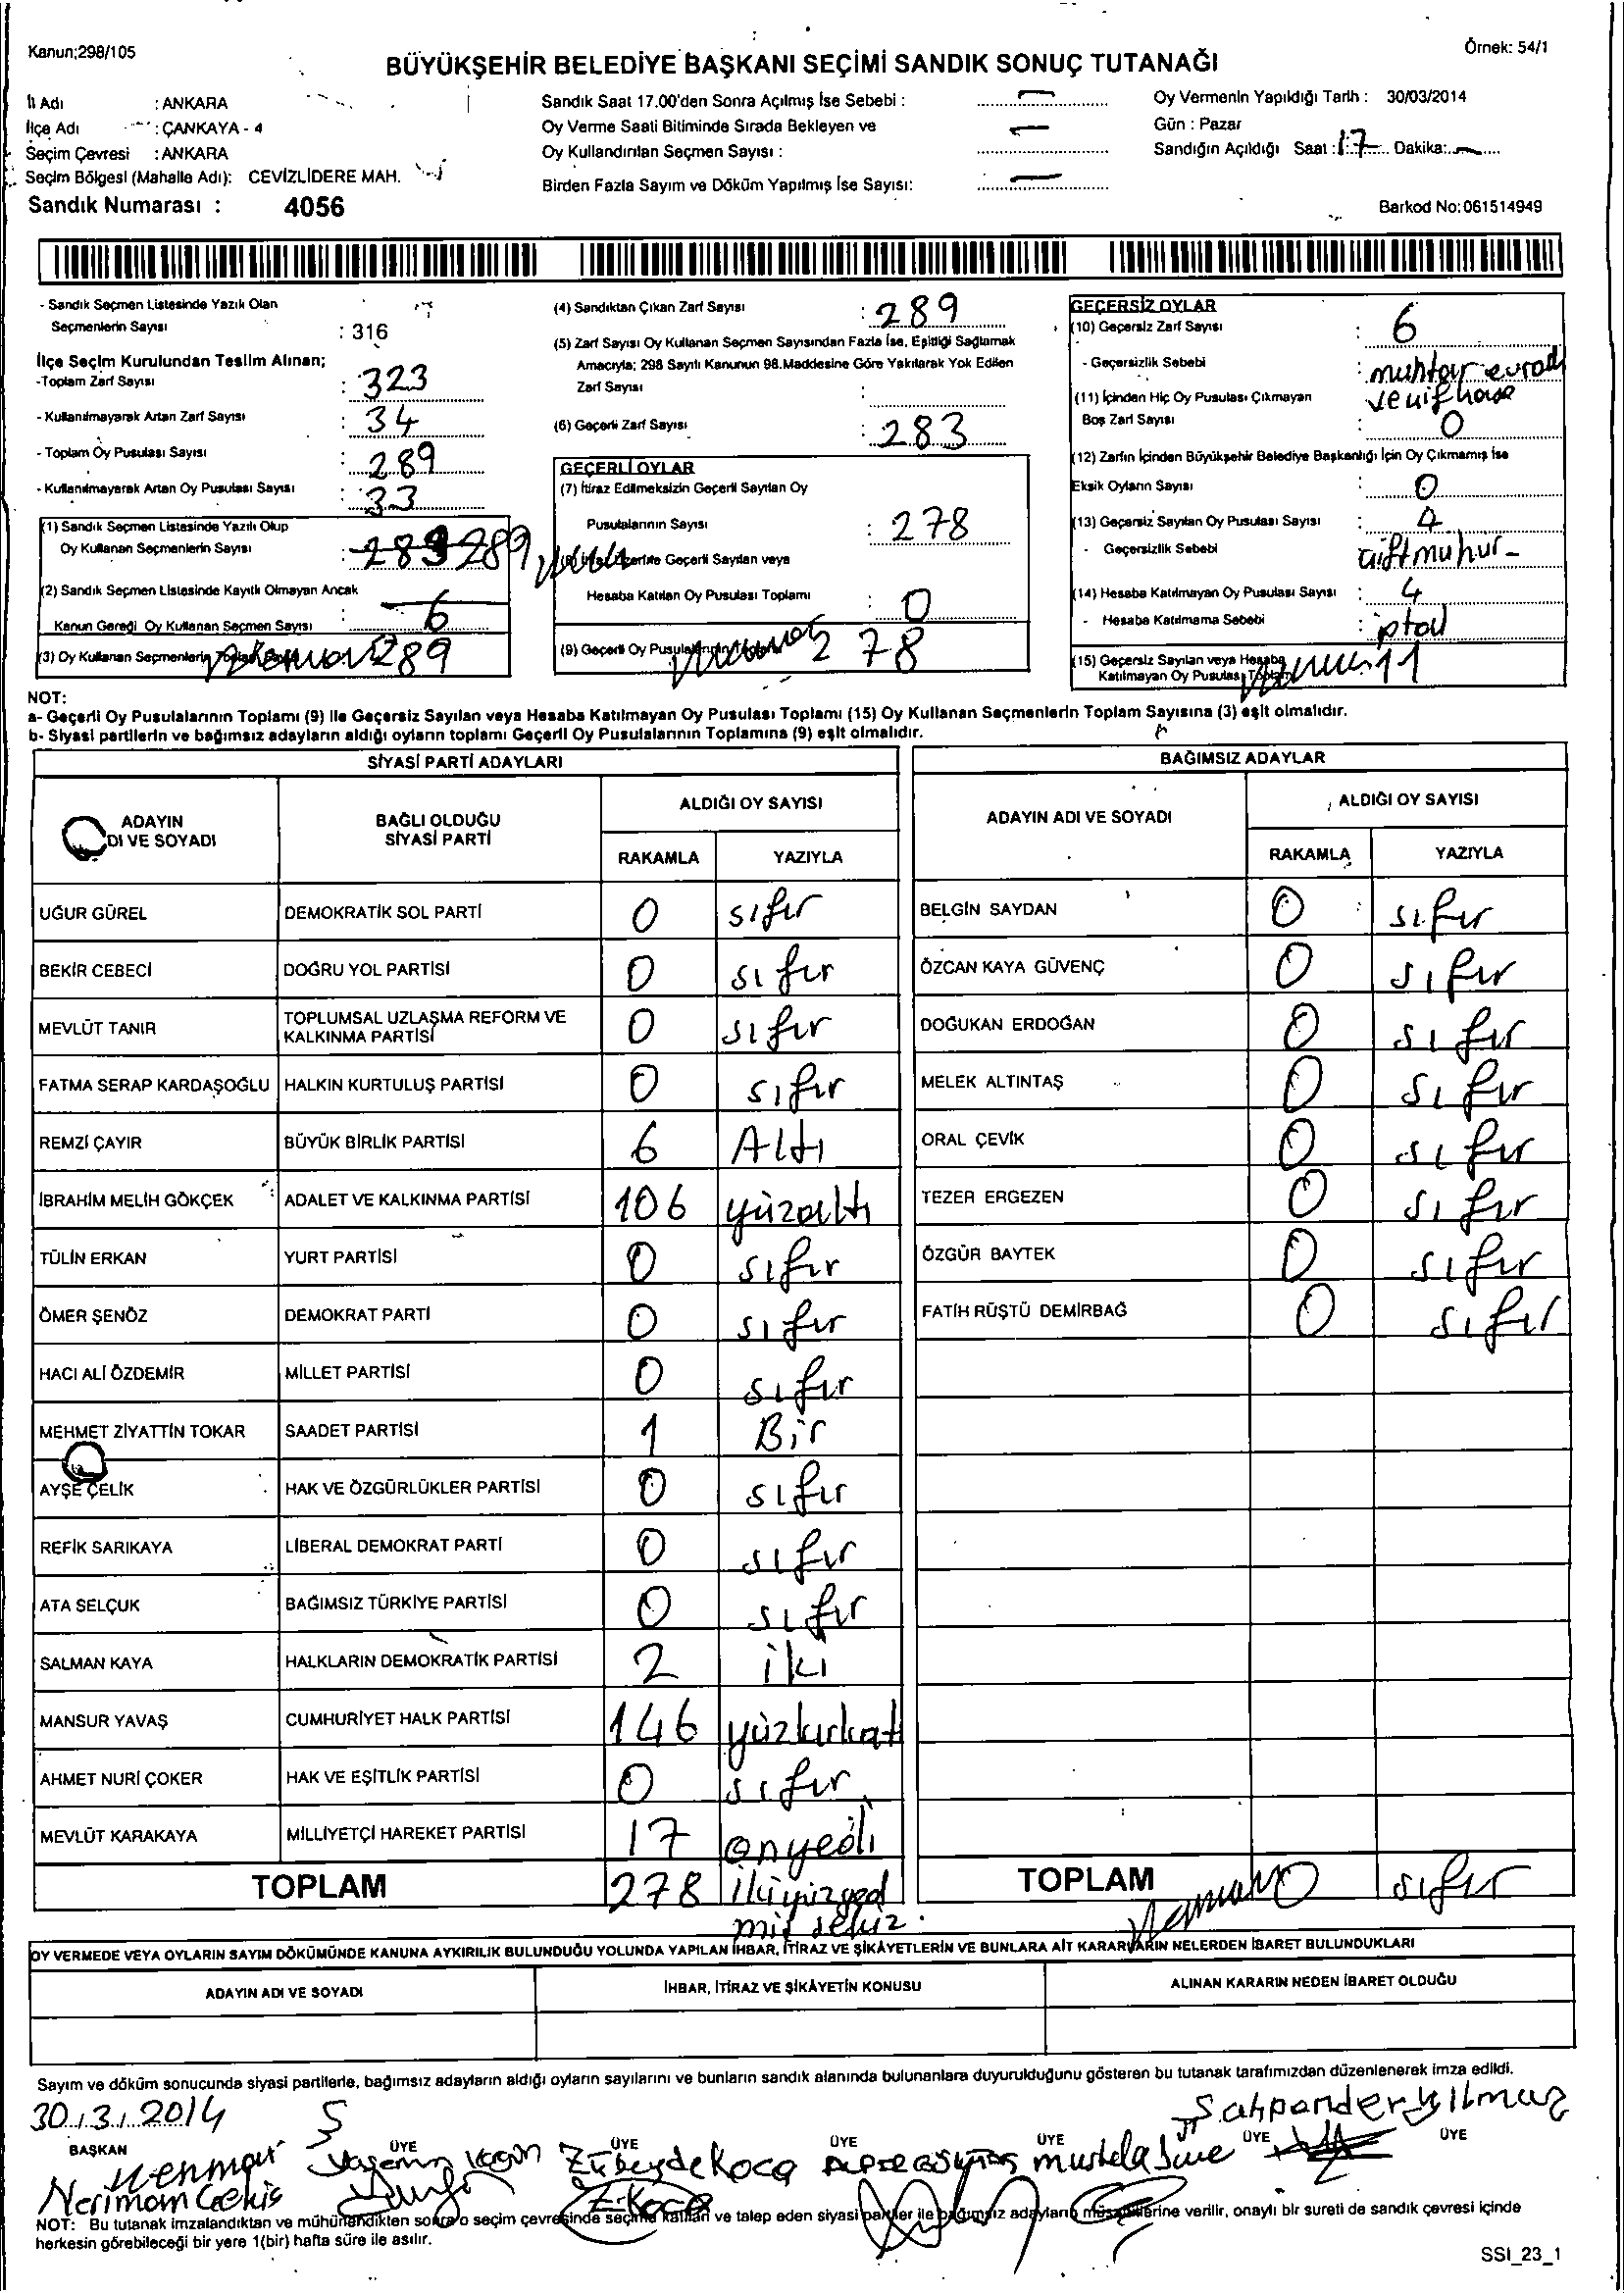 Kanun;298/105
Örnek: 54/1
BÜYÜKŞEHİR BELEDİYE BAŞKANI SEÇİMİ SANDIK SONUÇ TUTANAĞI
İl Adı : ANKARA
İlçe Adı : ÇANKAYA - 4
Seçim Çevresi : ANKARA
Seçim Bölgesi (Mahalle Adı): CEVİZLİDERE MAH.
Sandık Numarası : 4056
Sandık Saat 17.00'den Sonra Açılmış İse Sebebi : —
Oy Verme Saati Bitiminde Sırada Bekleyen ve
Oy Kullandırılan Seçmen Sayısı : —
Birden Fazla Sayım ve Döküm Yapılmış İse Sayısı: —
Oy Vermenin Yapıldığı Tarih : 30/03/2014
Gün : Pazar
Sandığın Açıldığı Saat : 17 Dakika: —
Barkod No: 061514949
- Sandık Seçmen Listesinde Yazılı Olan
Seçmenlerin Sayısı : 316
İlçe Seçim Kurulundan Teslim Alınan;
-Toplam Zarf Sayısı : 323
- Kullanılmayarak Artan Zarf Sayısı : 34
- Toplam Oy Pusulası Sayısı : 289
- Kullanılmayarak Artan Oy Pusulası Sayısı : 33
(1) Sandık Seçmen Listesinde Yazılı Olup
Oy Kullanan Seçmenlerin Sayısı : 283 289
(2) Sandık Seçmen Listesinde Kayıtlı Olmayan Ancak
Kanun Gereği Oy Kullanan Seçmen Sayısı : 6
(3) Oy Kullanan Seçmenlerin Toplam Sayısı 289
(4) Sandıktan Çıkan Zarf Sayısı : 289
(5) Zarf Sayısı Oy Kullanan Seçmen Sayısından Fazla İse, Eşitliği Sağlamak
Amacıyla; 298 Sayılı Kanunun 98.Maddesine Göre Yakılarak Yok Edilen
Zarf Sayısı :
(6) Geçerli Zarf Sayısı : 283
GEÇERLİ OYLAR
(7) İtiraz Edilmeksizin Geçerli Sayılan Oy
Pusulalarının Sayısı : 278
(8) İtiraz Üzerine Geçerli Sayılan veya
Hesaba Katılan Oy Pusulası Toplamı : 0
(9) Geçerli Oy Pusulalarının Toplamı 278
GEÇERSİZ OYLAR
(10) Geçersiz Zarf Sayısı : 6
- Geçersizlik Sebebi : muhtar
(11) İçinden Hiç Oy Pusulası Çıkmayan
Boş Zarf Sayısı : 0
(12) Zarfın İçinden Büyükşehir Belediye Başkanlığı İçin Oy Çıkmamış İse
Eksik Oyların Sayısı : 0
(13) Geçersiz Sayılan Oy Pusulası Sayısı : 4
- Geçersizlik Sebebi çiftmuhur-
(14) Hesaba Katılmayan Oy Pusulası Sayısı : 4
- Hesaba Katılmama Sebebi : iptal
(15) Geçersiz Sayılan veya Hesaba
Katılmayan Oy Pusulası Toplamı 11
NOT:
a- Geçerli Oy Pusulalarının Toplamı (9) ile Geçersiz Sayılan veya Hesaba Katılmayan Oy Pusulası Toplamı (15) Oy Kullanan Seçmenlerin Toplam Sayısına (3) eşit olmalıdır.
b- Siyasi partilerin ve bağımsız adayların aldığı oyların toplamı Geçerli Oy Pusulalarının Toplamına (9) eşit olmalıdır.
SİYASİ PARTİ ADAYLARI
ADAYIN
DI VE SOYADI
BAĞLI OLDUĞU
SİYASİ PARTİ
ALDIĞI OY SAYISI
RAKAMLA YAZIYLA
UĞUR GÜREL DEMOKRATİK SOL PARTİ 0 sıfır
BEKİR CEBECİ DOĞRU YOL PARTİSİ 0 sıfır
MEVLÜT TANIR TOPLUMSAL UZLAŞMA REFORM VE
KALKINMA PARTİSİ 0 sıfır
FATMA SERAP KARDAŞOĞLU HALKIN KURTULUŞ PARTİSİ 0 sıfır
REMZİ ÇAYIR BÜYÜK BİRLİK PARTİSİ 6 Altı
İBRAHİM MELİH GÖKÇEK ADALET VE KALKINMA PARTİSİ 106 yüzaltı
TÜLİN ERKAN YURT PARTİSİ 0 sıfır
ÖMER ŞENÖZ DEMOKRAT PARTİ 0 sıfır
HACI ALİ ÖZDEMİR MİLLET PARTİSİ 0 sıfır
MEHMET ZİYATTİN TOKAR SAADET PARTİSİ 1 Bir
AYŞE ÇELİK HAK VE ÖZGÜRLÜKLER PARTİSİ 0 sıfır
REFİK SARIKAYA LİBERAL DEMOKRAT PARTİ 0 sıfır
ATA SELÇUK BAĞIMSIZ TÜRKİYE PARTİSİ 0 sıfır
SALMAN KAYA HALKLARIN DEMOKRATİK PARTİSİ 2 iki
MANSUR YAVAŞ CUMHURİYET HALK PARTİSİ 146 yüzkırkat
AHMET NURİ ÇOKER HAK VE EŞİTLİK PARTİSİ 0 sıfır
MEVLÜT KARAKAYA MİLLİYETÇİ HAREKET PARTİSİ 17 onyedi
TOPLAM 278 ikiyüzyed
miş sekiz
BAĞIMSIZ ADAYLAR
ADAYIN ADI VE SOYADI
ALDIĞI OY SAYISI
RAKAMLA YAZIYLA
BELGİN SAYDAN 0 sıfır
ÖZCAN KAYA GÜVENÇ 0 sıfır
DOĞUKAN ERDOĞAN 0 sıfır
MELEK ALTINTAŞ 0 sıfır
ORAL ÇEVİK 0 sıfır
TEZER ERGEZEN 0 sıfır
ÖZGÜR BAYTEK 0 sıfır
FATİH RÜŞTÜ DEMİRBAĞ 0 sıfır
TOPLAM 0 sıfır
OY VERMEDE VEYA OYLARIN SAYIM DÖKÜMÜNDE KANUNA AYKIRILIK BULUNDUĞU YOLUNDA YAPILAN İHBAR, İTİRAZ VE ŞİKÂYETLERİN VE BUNLARA AİT KARARLARIN NELERDEN İBARET BULUNDUKLARI
ADAYIN ADI VE SOYADI
İHBAR, İTİRAZ VE ŞİKÂYETİN KONUSU
ALINAN KARARIN NEDEN İBARET OLDUĞU
Sayım ve döküm sonucunda siyasi partilerle, bağımsız adayların aldığı oyların sayılarını ve bunların sandık alanında bulunanlara duyurulduğunu gösteren bu tutanak tarafımızdan düzenlenerek imza edildi.
30.3.2014
BAŞKAN ÜYE ÜYE ÜYE ÜYE ÜYE ÜYE
Zübeyde Koca
Z.Koca
NOT: Bu tutanak imzalandıktan ve mühürlendikten sonra o seçim çevresinde seçime katılan ve talep eden siyasi partiler ile bağımsız adayların müşahitlerine verilir, onaylı bir sureti de sandık çevresi içinde
herkesin görebileceği bir yere 1(bir) hafta süre ile asılır.
SSI_23_1